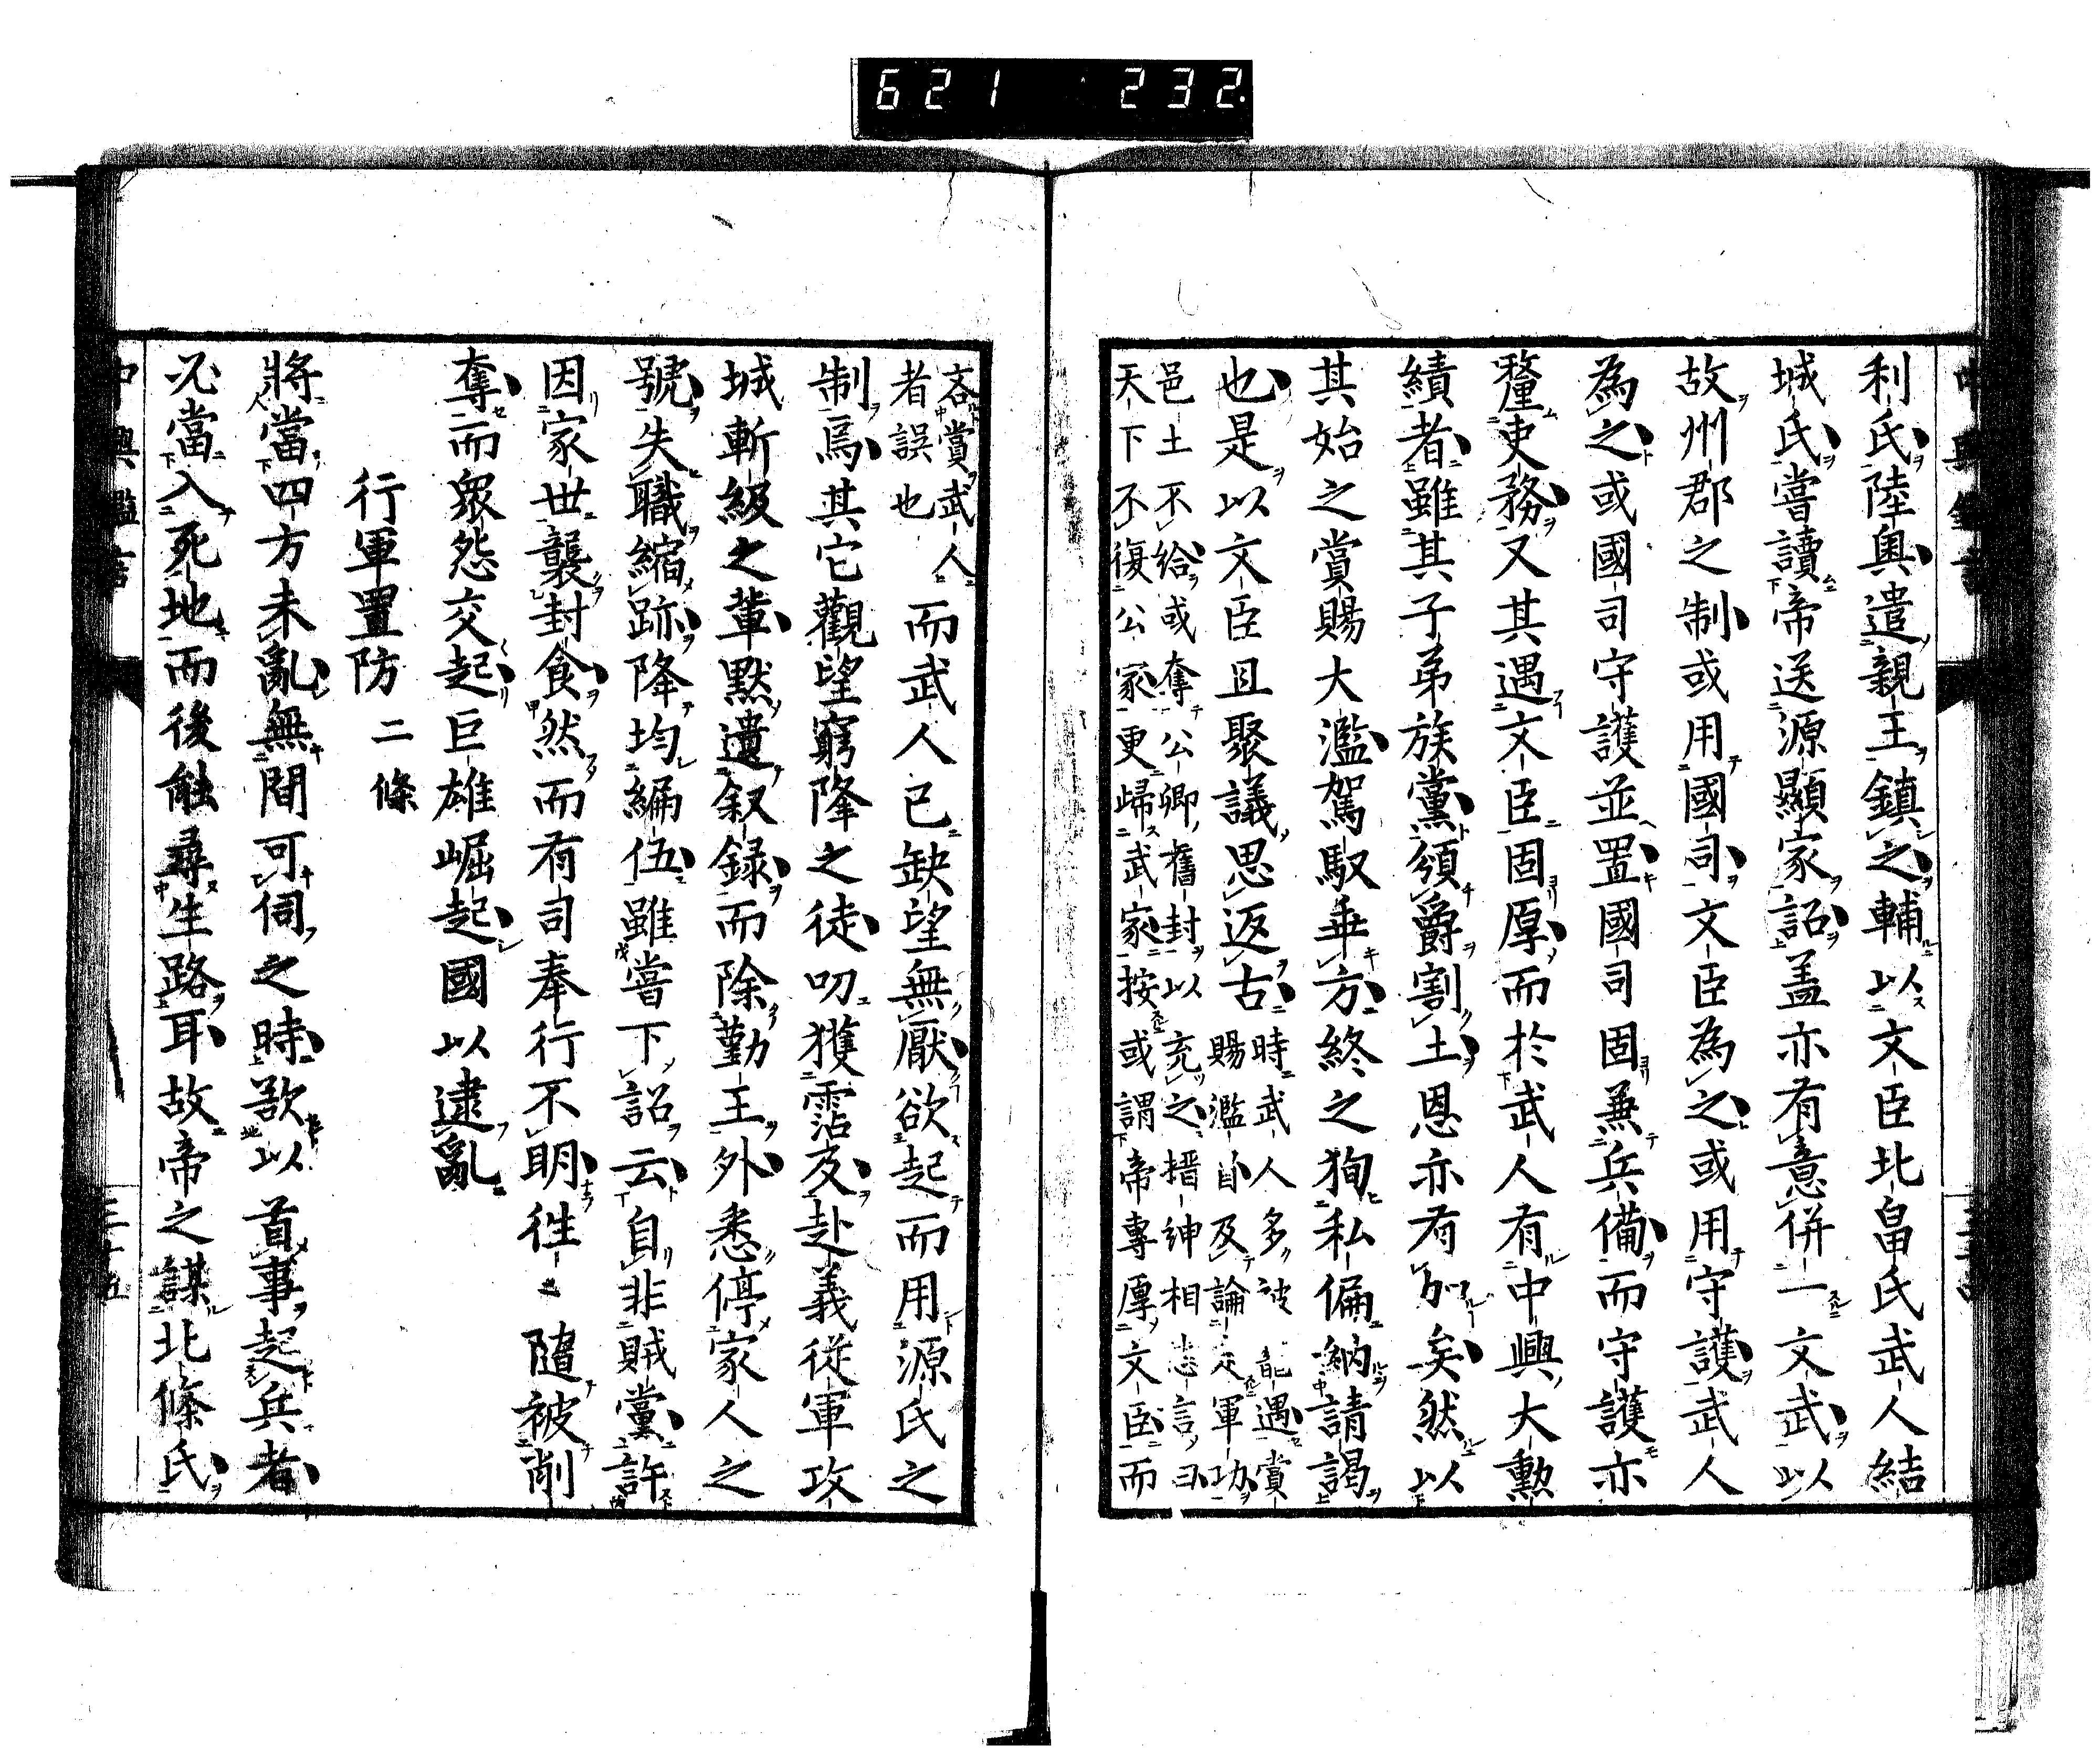 621 232
利氏陸奧遣親王鎮之輔以文臣北畠氏武人結
城氏嘗讀帝送源顯家詔盖亦有意併一文武以
故州郡之制或用國司文臣為之或用守護武人
為之或國司守護並置國司固兼兵備而守護亦
釐吏務又其遇文臣固厚而於武人有中興大勲
績者雖其子弟族黨頒爵割土恩亦有加矣然以
其始之賞賜大濫駕馭乖方終之狥私偏納請謁
也是以文臣且聚議思返古
時武人多被能遇賞
賜濫自及論定軍功
邑土不給或奪公卿舊封以充之搢紳相恚言曰
天下不復公家更歸武家按或謂帝專厚文臣而
吝賞武人
者誤也
而武人已缺望無厭欲起而用源氏之
制焉其它觀望窮降之徒叨獲霑及赴義從軍攻
城斬級之輩黙遺叙録而除勤王外悉停家人之
號失職縮跡降均編伍雖嘗下詔云自非賊黨許
因家世襲封食然而有司奉行不明徃々隨被削
奪而衆怨交起巨雄崛起國以逮亂
行軍置防 二條
將當四方未亂無間可伺之時欲以首事起兵者
必當入死地而後能尋生路耳故帝之謀北條氏